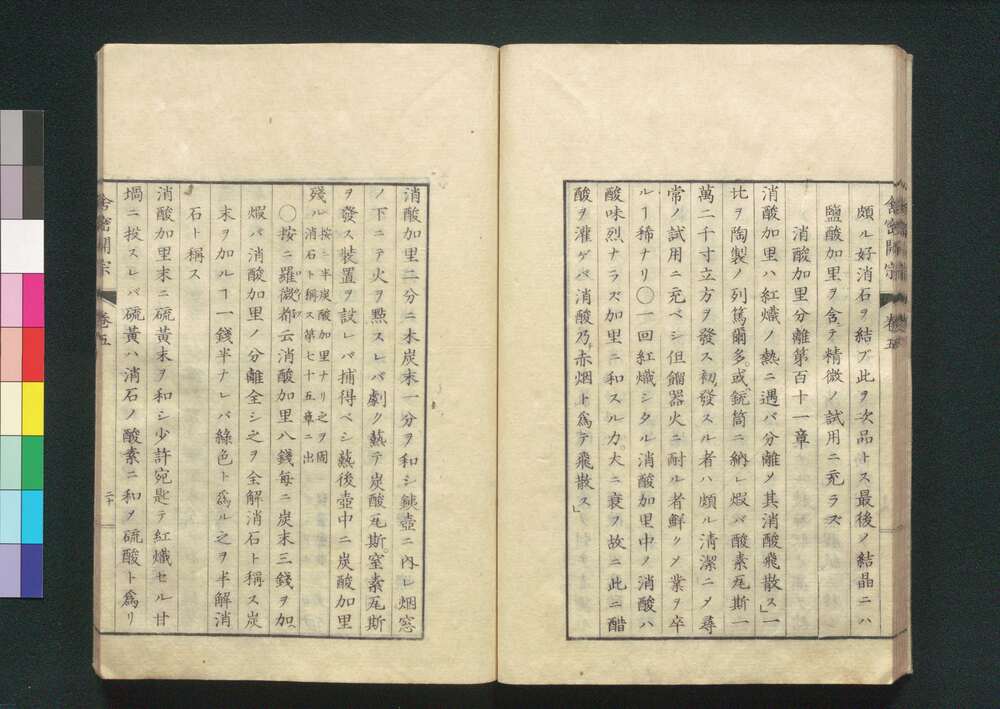 頗ル好消石ヲ結ブ此ヲ次品トス最後ノ結晶ニハ
鹽酸加里ヲ含テ精微ノ試用ニ充ラズ
消酸加里分離第百十一章
消酸加里ハ紅熾ノ熱ニ遇バ分離ヲ其消酸飛散ス」一
比ヲ陶製ノ列篤爾多。或、銃筒ニ納レ煆バ酸素瓦斯一
萬二千寸立方ヲ發ス初發スル者ハ頗ル清潔ニメ尋
常ノ試用ニ充ベシ但餾器火ニ耐ル者鮮クメ業ヲ卒
ルヿ稀ナリ〇一回紅熾シタル消酸加里中ノ消酸ハ
酸味烈ナラズ加里ニ和スル力。大ニ衰ヲ故ニ此ニ醋
酸ヲ灌ゲバ消酸乃赤烟ト爲テ飛散ス」
消酸加里二分ニ木炭末一分ヲ和シ鐵壺ニ內レ烟窓
ノ下ニテ火ヲ點スレバ劇ク爇テ炭酸瓦斯。窒素瓦斯
ヲ發ス裝置ヲ設レバ捕得ベシ爇後壺中ニ炭酸加里
殘ル按ニ半炭酸加里ナリ之ヲ固
消石ト稱ス第七十五章ニ出
〇按ニ羅微都云消酸加里八錢每ニ炭末三錢ヲ加
煆バ消酸加里ノ分離全シ之ヲ全解消石ト稱ス炭
末ヲ加ルヿ一錢半ナレバ綠色ト爲ル之ヲ半解消
石ト稱ス
消酸加里末ニ硫黃末ヲ和シ少許宛匙テ紅熾セル甘
堝ニ投スレバ硫黃ハ消石ノ酸素ニ和ヲ硫酸ト爲リ
舍密開宗
卷五
二十